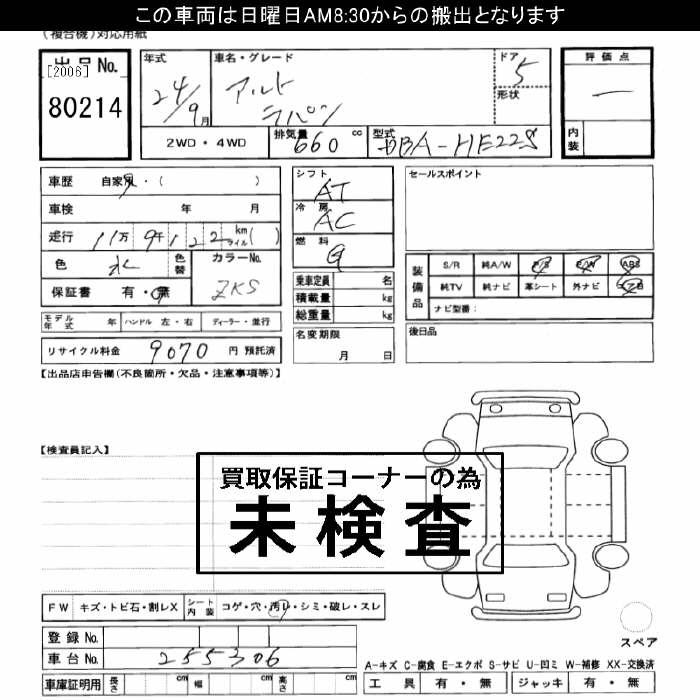 この車両は日曜日AM8:30からの搬出となります
(複合機)対応用紙
出品No.
[2006]
80214
年式
24/9月
車名・グレード
アルト
ラパン
ドア
5
形状
評価点
内装
2WD・4WD
排気量 660 cc
型式 DBA-HE22S
車歴 自家用・( )
車検 年 月
走行 11万9千122 km マイル( )
色 水 色替
カラーNo.
ZKS
保証書 有・無
モデル年式 年 ハンドル 左・右 ディーラー・並行
リサイクル料金 9070 円 預託済
シフト
AT
冷房
AC
燃料
G
乗車定員 名
積載量 kg
総重量 kg
名変期限
月 日
セールスポイント
装備品
S/R 純A/W P/S P/W ABS
純TV 純ナビ 革シート 外ナビ エアB
ナビ型番:
後日品
【出品店申告欄(不良箇所・欠品・注意事項等)】
【検査員記入】
買取保証コーナーの為
未検査
FW キズ・トビ石・割レX シート内装 コゲ・穴・汚レ・シミ・破レ・スレ
登録No.
車台No. 255306
車庫証明用 長さ cm 幅 cm 高さ cm
スペア
A-キズ C-腐食 E-エクボ S-サビ U-凹ミ W-補修 XX-交換済
工具 有・無 ジャッキ 有・無